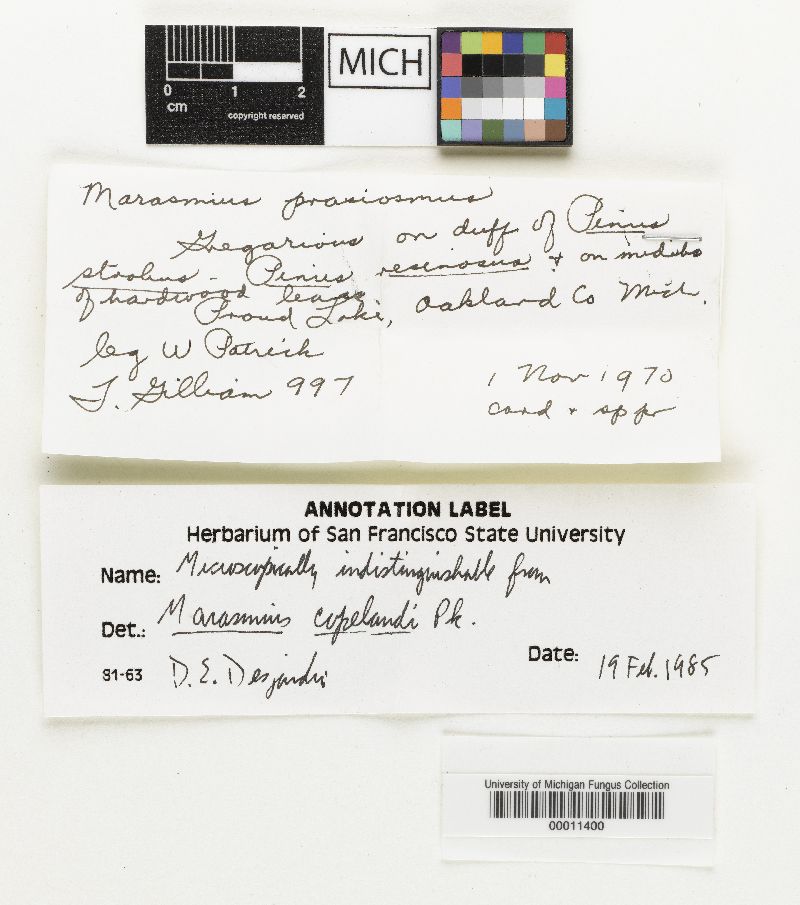 0 1 2
cm
copyright reserved
MICH
Marasmius prasiosmus
Gregarious on duff of Pinus
strobus - Pinus resinosus & on midribs
of hardwood leaves
Proud Lake, Oakland Co Mich.
leg W Patrick
T. Gilliam 997
1 Nov 1970
cond & sp pr
ANNOTATION LABEL
Herbarium of San Francisco State University
Name: Microscopically indistinguishable from
Det.: Marasmius copelandi Pk.
81-63 D.E. Desjardin
Date: 19 Feb. 1985
University of Michigan Fungus Collection
00011400